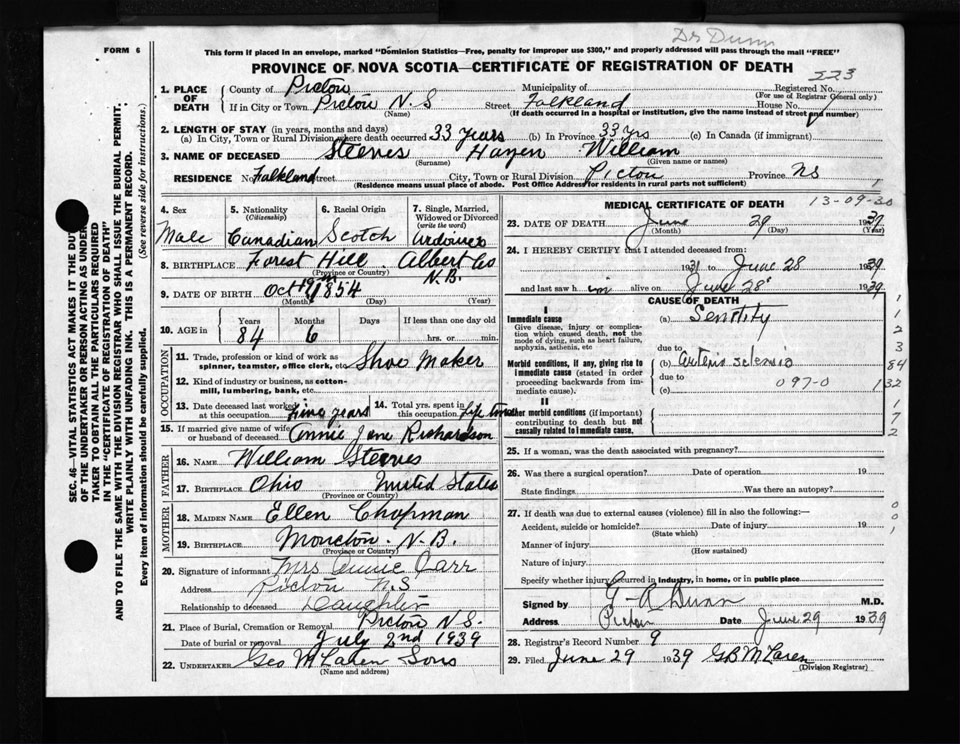 Dr Dunn
FORM 6
This form if placed in an envelope, marked "Dominion Statistics—Free, penalty for improper use $300," and properly addressed will pass through the mail "FREE"
PROVINCE OF NOVA SCOTIA—CERTIFICATE OF REGISTRATION OF DEATH
223
SEC. 46—VITAL STATISTICS ACT MAKES IT THE DUTY
OF THE UNDERTAKER OR PERSON ACTING AS UNDER-
TAKER TO OBTAIN ALL THE PARTICULARS REQUIRED
IN THE "CERTIFICATE OF REGISTRATION OF DEATH"
AND TO FILE THE SAME WITH THE DIVISION REGISTRAR WHO SHALL ISSUE THE BURIAL PERMIT.
WRITE PLAINLY WITH UNFADING INK. THIS IS A PERMANENT RECORD.
Every item of information should be carefully supplied. (See reverse side for instructions.)
1. PLACE OF DEATH County of Pictou Municipality of Registered No.
(For use of Registrar General only)
If in City or Town Pictou N.S Street Falkland House No.
(Name) (If death occurred in a hospital or institution, give the name instead of street and number)
2. LENGTH OF STAY (in years, months and days)
(a) In City, Town or Rural Division where death occurred 33 years (b) In Province 33 yrs (c) In Canada (if immigrant)
3. NAME OF DECEASED Steeves Hazen William
(Surname) (Given name or names)
RESIDENCE No. Falkland Street City, Town or Rural Division Pictou Province NS 1
(Residence means usual place of abode. Post Office Address for residents in rural parts not sufficient)
4. Sex 5. Nationality 6. Racial Origin 7. Single, Married,
(Citizenship) Widowed or Divorced
(write the word)
Male Canadian Scotch Widower
8. BIRTHPLACE Forest Hill Albert Co
(Province or Country) N.B.
9. DATE OF BIRTH Oct 1854
(Month) (Day) (Year)
10. AGE in Years Months Days If less than one day old
84 6 hrs. or min.
OCCUPATION
11. Trade, profession or kind of work as
spinner, teamster, office clerk, etc. Shoe Maker
12. Kind of industry or business, as cotton-
mill, lumbering, bank, etc.
13. Date deceased last worked
at this occupation years
14. Total yrs. spent in
this occupation Life time
15. If married give name of wife
or husband of deceased Annie Jane Richardson
FATHER
16. NAME William Steeves
17. BIRTHPLACE Ohio United States
(Province or Country)
MOTHER
18. MAIDEN NAME Ellen Chapman
19. BIRTHPLACE Moncton N.B.
(Province or Country)
20. Signature of informant Mrs Annie Carr
Address Pictou N.S
Relationship to deceased Daughter
21. Place of Burial, Cremation or Removal Pictou N.S.
Date of burial or removal July 2nd 1939
22. UNDERTAKER Geo McLaren Sons
(Name and address)
MEDICAL CERTIFICATE OF DEATH 13-09-30
23. DATE OF DEATH June 29 1939
(Month) (Day) (Year)
24. I HEREBY CERTIFY that I attended deceased from:
1931 to June 28 1939
and last saw him alive on June 28 1939
CAUSE OF DEATH
I
Immediate cause (a) Senility
Give disease, injury or complica-
tion which caused death, not the
mode of dying, such as heart failure,
asphyxia, asthenia, etc
due to
Morbid conditions, if any, giving rise to
immediate cause (stated in order
proceeding backwards from im-
mediate cause).
(b)
due to 097-0
(c)
II
Other morbid conditions (if important)
contributing to death but not
causally related to immediate cause.
1
1
2
3
84
132
1
7
2
25. If a woman, was the death associated with pregnancy?
26. Was there a surgical operation? Date of operation 19
State findings Was there an autopsy?
27. If death was due to external causes (violence) fill in also the following:—
Accident, suicide or homicide? Date of injury 19
(State which)
Manner of injury
(How sustained)
Nature of injury
Specify whether injury occurred in industry, in home, or in public place
0
0
1
Signed by G R Dunn M.D.
Address Pictou Date June 29 1939
28. Registrar's Record Number 9
29. Filed June 29 1939 GB McLaren
(Division Registrar)